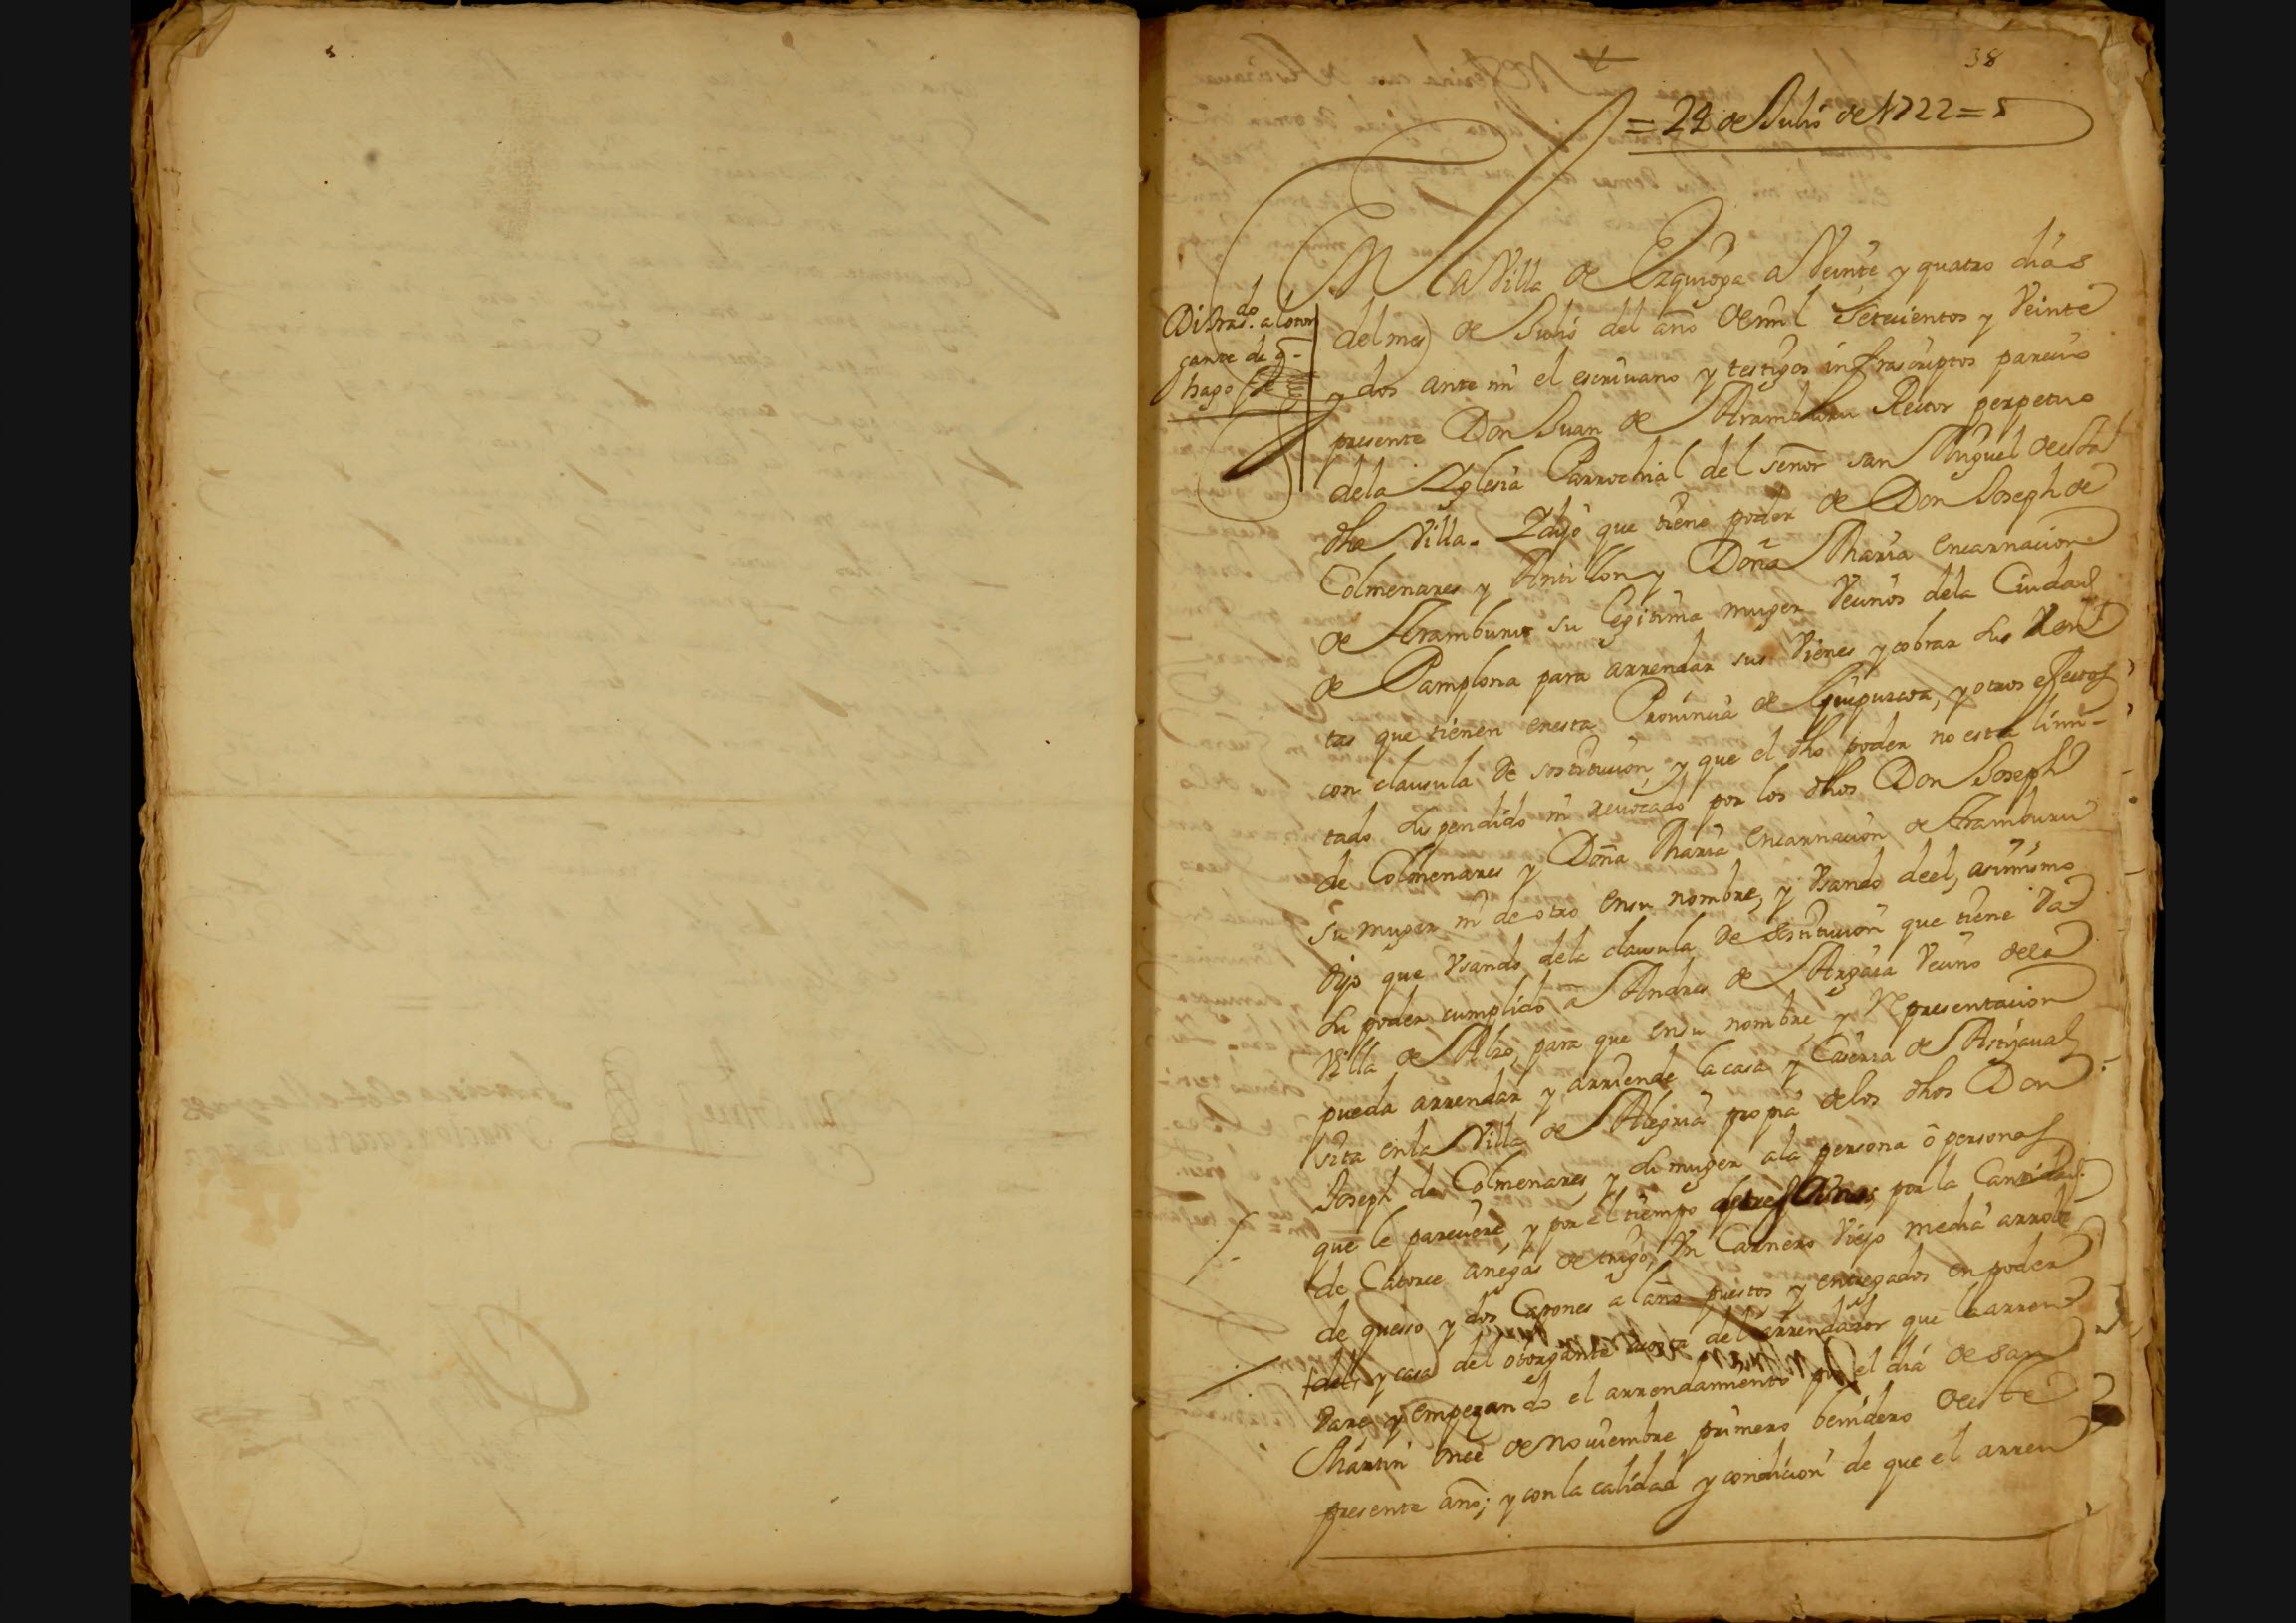 38
= 24 de Julio de 1722 =
En la Villa de Ezquioga a Veinte y quatro dias
del mes de Julio del año de mil Setecientos y Veinte
y dos ante mi el escriuano y testigos infrascriptos parecio
presente Don Juan de Aramburu Rector perpetuo
dela Yglesia Parrochial del señor san Miguel de esta
dha Villa. Y dijo que tiene poder de Don Joseph de
Colmenares y Antillon y Doña Maria encarnacion
de Aramburu su legitima muger Vecinos dela Ciudad
de Pamplona para arrendar sus Vienes y cobrar sus Ren
tas que tienen enesta Prouincia de Guipuzcoa, y otros efectos
con clausula de sostitucion y que el dho poder no esta limi-
tado suspendido ni reuocado por los dhos Don Joseph
de Colmenares y Doña Maria encarnacion de Aramburu
su muger ni de otro ensu nombre, y Vsando deel, asimismo
dijo que Vsando dela clausula de sostitucion que tiene da
su poder cumplido a Andres de Argaia Vecino dela
Villa de Alzo, para que ensu nombre y Representacion
pueda arrendar y arriende la casa y Caseria de Astigaual
sita enla Villa de Alegria propia delos dhos Don
Joseph de Colmenares y su muger ala persona o personas
que le pareciere, y por el tiempo de tres años por la Cantidad
de Catorce anegas de trigo, Vn Carnero Viejo media arroba
de quesso y dos Capones al año puestos y entregados en poder
y casa del otorgante acosta del arrendador que la arren
dare, y empezando el arrendamiento por el dia de san
Martin once de nouiembre primero benidero de este
presente año; y con la calidad y condicion de que el arren
Di tras.do al otor
gante de q
hago fee